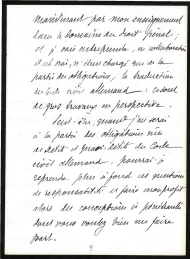 maintenant par mon enseignement
dans le domaine du droit pénal ;
et j'ai entrepris, en collaboration
il est vrai, n'étant chargé que de la
partie des obligations, la traduction
du Code civil allemand : ce sont
de gros travaux en perspective.
Peut-être, quand j'en serai
à la partie des obligations nées
de délit et quasi-délit du Code
civil allemand, pourrai-je
reprendre plus à fond ces questions
de responsabilité et faire mon profit
alors des conceptions si pénétrantes
dont vous voulez bien me faire
part.